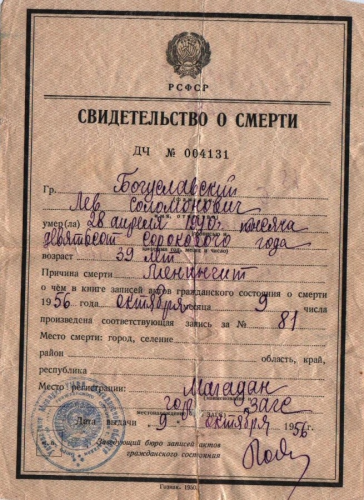 РСФСР
СВИДЕТЕЛЬСТВО О СМЕРТИ
ДЧ № 004131
Гр. Богуславский
Лев Соломонович
умер(ла) 28 апреля 1940 г. тысяча
девятьсот сорокового года
возраст 39 лет
Причина смерти Менингит
о чём в книге записей актов гражданского состояния о смерти
1956 года октября месяца 9 числа
произведена соответствующая запись за № 81
Место смерти: город, селение
район область, край,
республика
Место регистрации: Магадан
гор ЗАГС
Дата выдачи 9 октября 1956 г.
Заведующий бюро записей актов
гражданского состояния